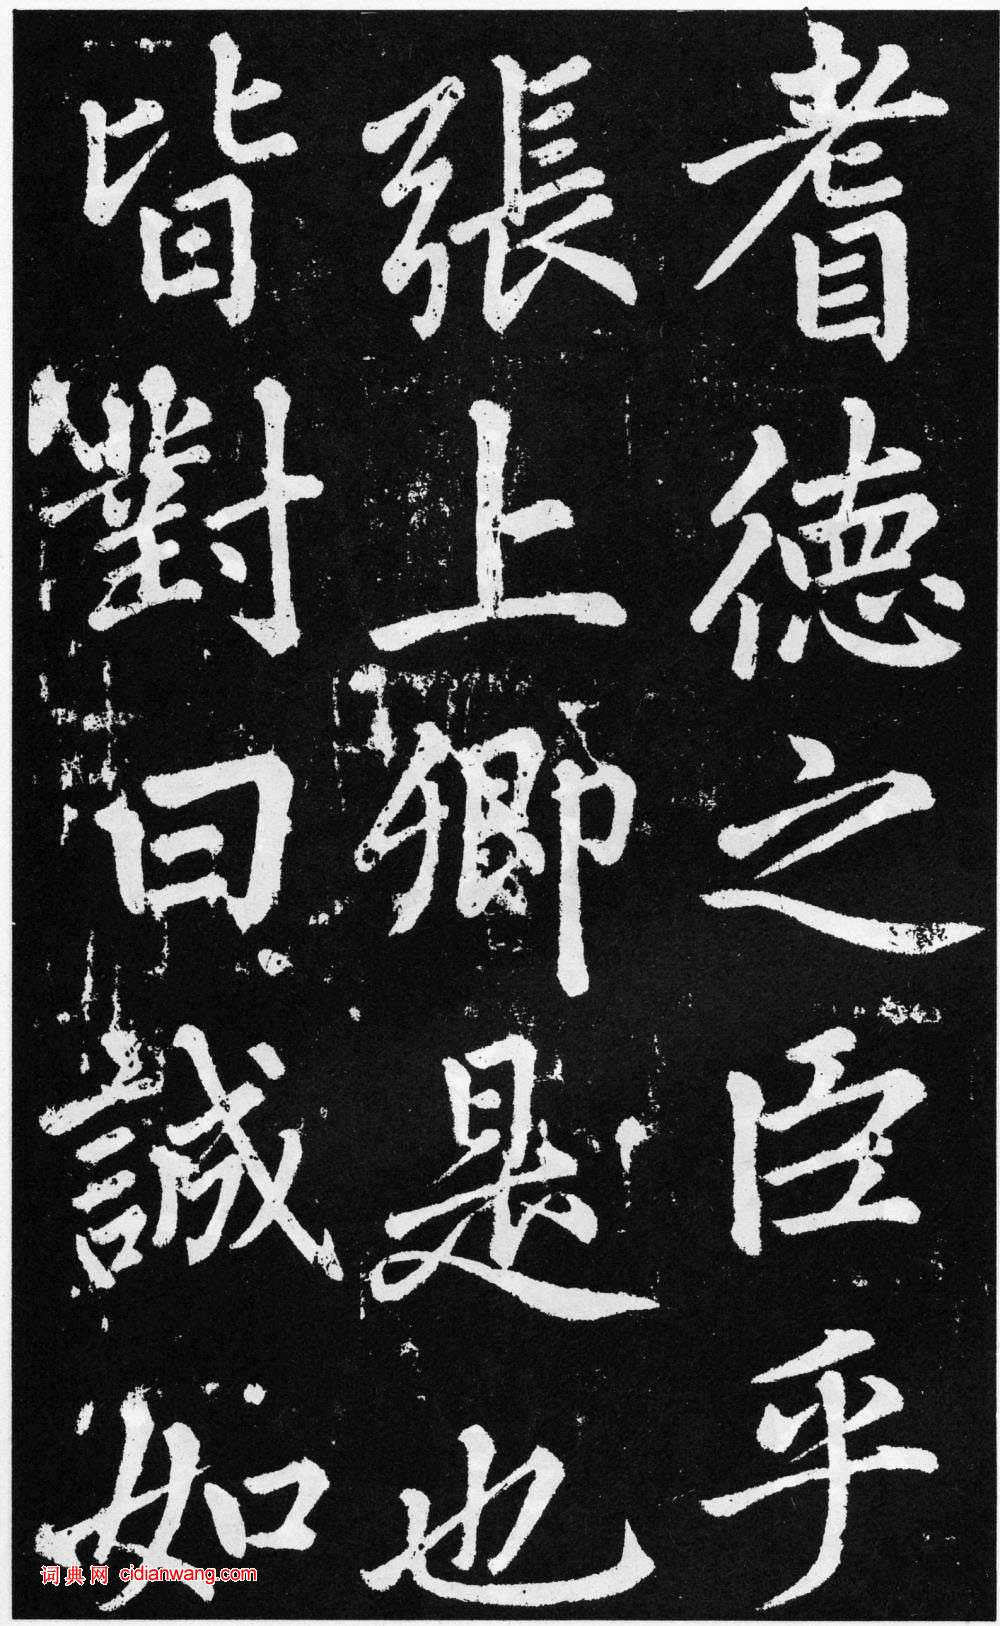 耆德之臣乎
張上卿是也
皆對曰誠如
词典网 cidianwang.com